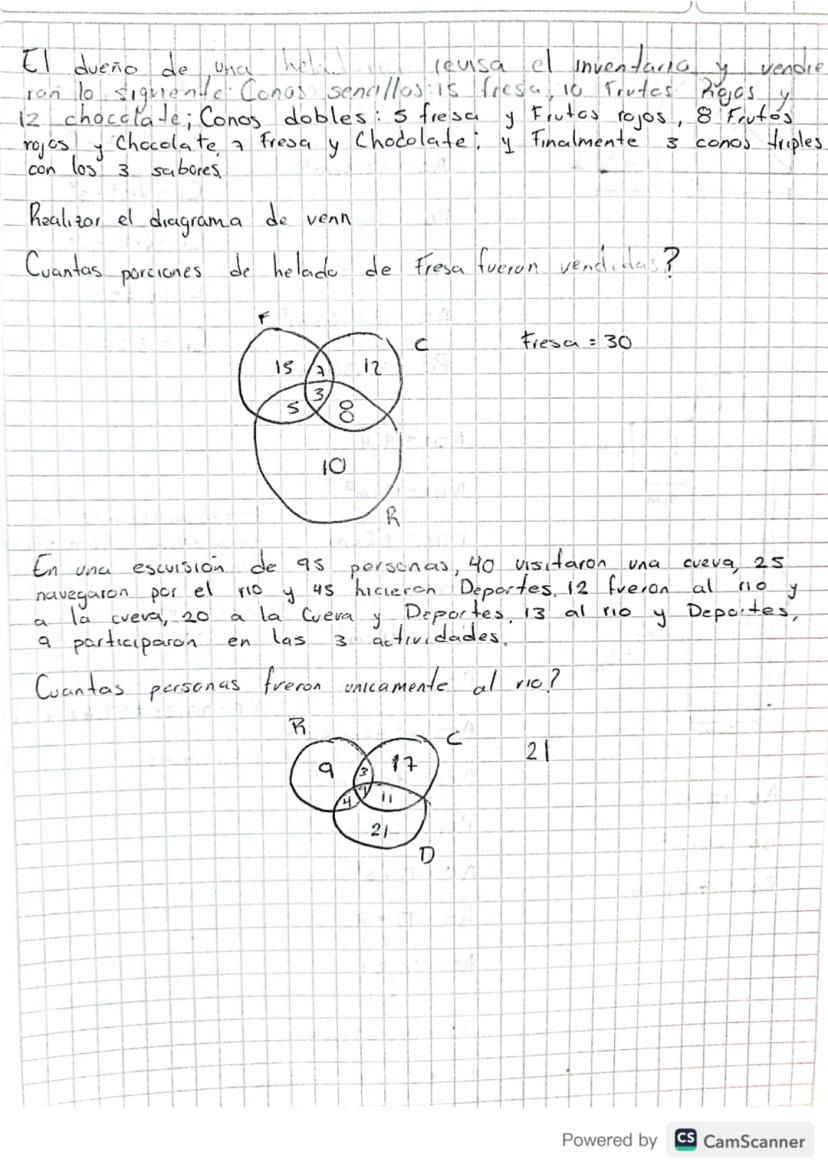 El dueño de una revisa el inventario y vendie
ron lo siguiente: Conos sencillos: 15 fresa, 10 Frutos Rojos y
12 chocolate; Conos dobles: 5 fresa y Frutos rojos, 8 Frutos
rojos y Chocolate, 7 Fresa y Chocolate; y Finalmente 3 conos triples
con los 3 sabores.
Realizar el diagrama de venn
Cuantas porciones de helado de Fresa fueron vendidas?
F
C
Fresa = 30
15 7 12
3
5 8
10
R
En una escursión de 95 personas, 40 visitaron una cueva, 25
navegaron por el rio y 45 hicieron Deportes, 12 fueron al rio y
a la cueva, 20 a la Cueva y Deportes, 13 al rio y Deportes,
9 participaron en las 3 actividades.
Cuantas personas fueron unicamente al rio?
R
C
21
9 3 17
4 11
21
D
Powered by CS CamScanner